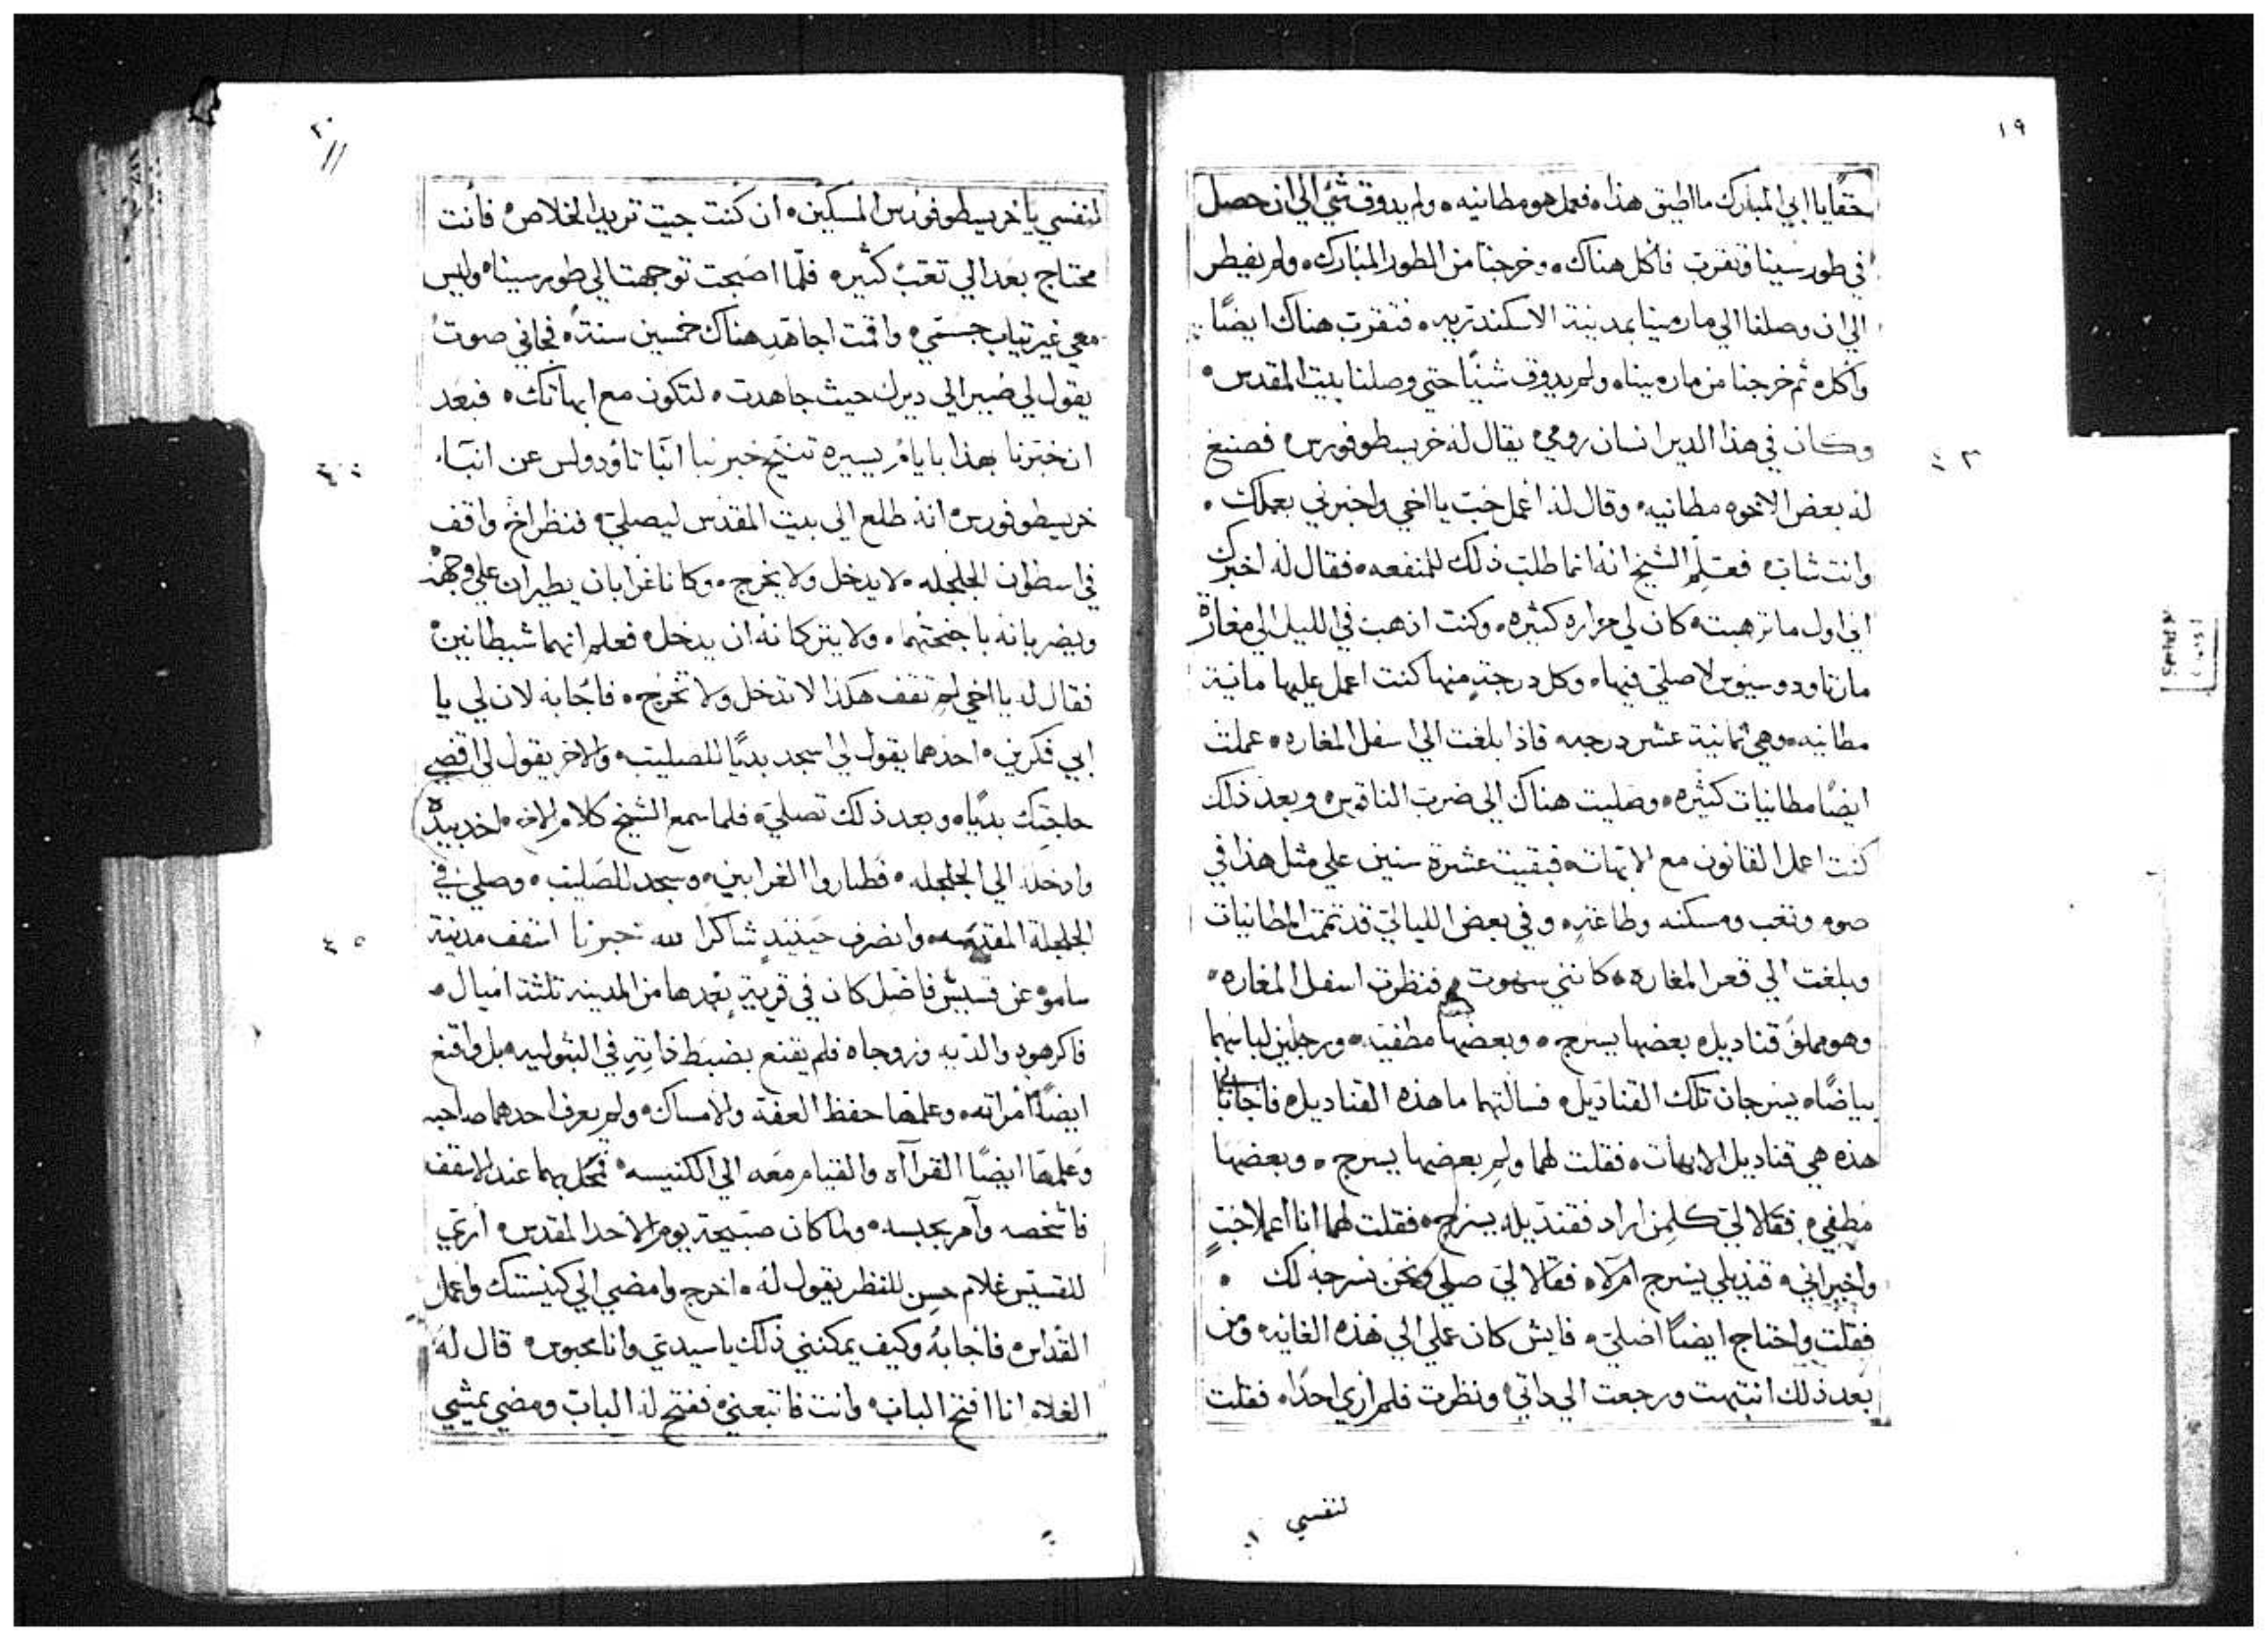 ١٩
حقًا يا ابي المبارك ما اطيق هذا، فعمل هو مطانيه، ولم يدوق شي الي ان حصل
في طور سينا وتقرب فاكل هناك، وخرجنا من الطور المبارك، ولم يفطر
الي ان وصلنا الي مار مينا بمدينة الاسكندريه، فتقرب هناك ايضًا
واكل، ثم خرجنا من مار مينا، ولم يدوق شيًا حتي وصلنا بيت المقدس،
٤٣
وكان في هذا الدير انسان رومي، يقال له خريسطوفورس، فصنع
له بعض الاخوه مطانيه، وقال له اعمل حب يا اخي واخبرني بعملك،
وانت شاب، فعلم الشيخ انه انما طلب ذلك للمنفعه، فقال له اخبرك
اني اول ما ترهبت، كان لي حراره كثيره، وكنت اذهب في الليل الي مغارة
مار تاودوسيوس لاصلي فيها، وكل درجة منها كنت اعمل عليها ماية
مطانيه، وهي ثمانية عشر درجه، فاذا بلغت الي اسفل المغاره، عملت
ايضًا مطانيات كثيره، وصليت هناك الي ضرب الناقوس، وبعد ذلك
كنت اعمل القانون مع الابهات، فبقيت عشرة سنين علي مثل هذا في
صوم وتعب ومسكنه وطاعته، وفي بعض الليالي قد تممت المطانيات
وبلغت الي قعر المغاره، كانني سهوت، فنظرت اسفل المغاره،
وهو مملو قناديل، بعضها يسرج، وبعضها مطفيه، ورجلين لباسهما
بياضًا، يسرجان تلك القناديل، فسالتهما ما هذه القناديل، فاجاباني
هذه هي قناديل الابهات، فقلت لهما ولم بعضها يسرج، وبعضها
مطفي، فقالا لي كلمن اراد فقنديله يسرج، فقلت لهما انا اعملا حب
واخبراني، قنديلي يسرج ام لا، فقالا لي صلي ونحن نسرجه لك،
فقلت واحتاج ايضًا اصلي، فايش كان عملي الي هذه الغايه، ومن
بعد ذلك انتبهت ورجعت الي داتي، ونظرت فلم اري احدًا، فقلت
لنفسي
٢٠
لنفسي يا خريسطوفورس المسكين، ان كنت جيت تريد الخلاص، فانت
محتاج بعد الي تعب كثير، فلما اصبحت توجهت الي طور سينا، وليس
معي غير تياب جسمي، واقمت اجاهد هناك خمسين سنة، فجاني صوت
يقول لي صير الي ديرك حيث جاهدت، لتكون مع ابهاتك، فبعد
٤٤
ان خبرنا بهذا بايام يسيره تنيح خبرنا انبا تاودولس عن انبا
خريسطوفورس، انه طلع الي بيت المقدس ليصلي، فنظر اخ، واقف
في اسطوان الجلجله، لا يدخل ولا يخرج، وكانا غرابان يطيران علي وجهه
ويضربانه باجنحتهما، ولا يتركانه ان يدخل، فعلم انهما شيطانين
فقال له يا اخي لم تقف هكذا لا تدخل ولا تخرج، فاجابه لان لي يا
ابي فكرين، احدهما يقول لي اسجد بديًا للصليب، والاخر يقول لي اقضي
حاجتك بديًا، وبعد ذلك تصلي، فلما سمع الشيخ كلام الاخ، اخد بيده
وادخله الي الجلجله، فطاروا الغرابين، وسجد للصليب، وصلي في
٤٥
الجلجلة المقدسه، وانصرف حينيذ شاكرا لله خبرنا اسقف مدينة
ساموا عن قسيس فاضل كان في قرية بعدها من المدينه تلتة اميال،
فاكرهوه والديه وزوجاه، فلم يقنع بضبط ذاته في البتوليه، بل واقنع
ايضًا امراته، وعلمها حفظ العفة والامساك، ولم يعرف احدهما صاحبه
وعلمها ايضًا القرآاه والقيام معه الي الكنيسه، فمحل بهما عند الاسقف
فاشخصه وآمر بحبسه، ولما كان صبيحة يوم الاحد المقدس، اري
للقسيس غلام حسن للنظر يقول له، اخرج وامضي الي كنيستك واعمل
القداس، فاجابه وكيف يمكنني ذلك يا سيدي وانا محبوس، قال له
الغلام انا افتح الباب، وانت فاتبعني، ففتح له الباب ومضي يمشي